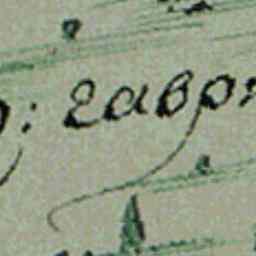 : гавр